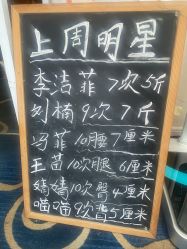 上周明星
李洁菲 7次 5斤
刘楠 9次 7斤
冯菲 10次腰 7厘米
王苗 10次腿 6厘米
婧婧 10次臀 4厘米
喵喵 9次背 5厘米